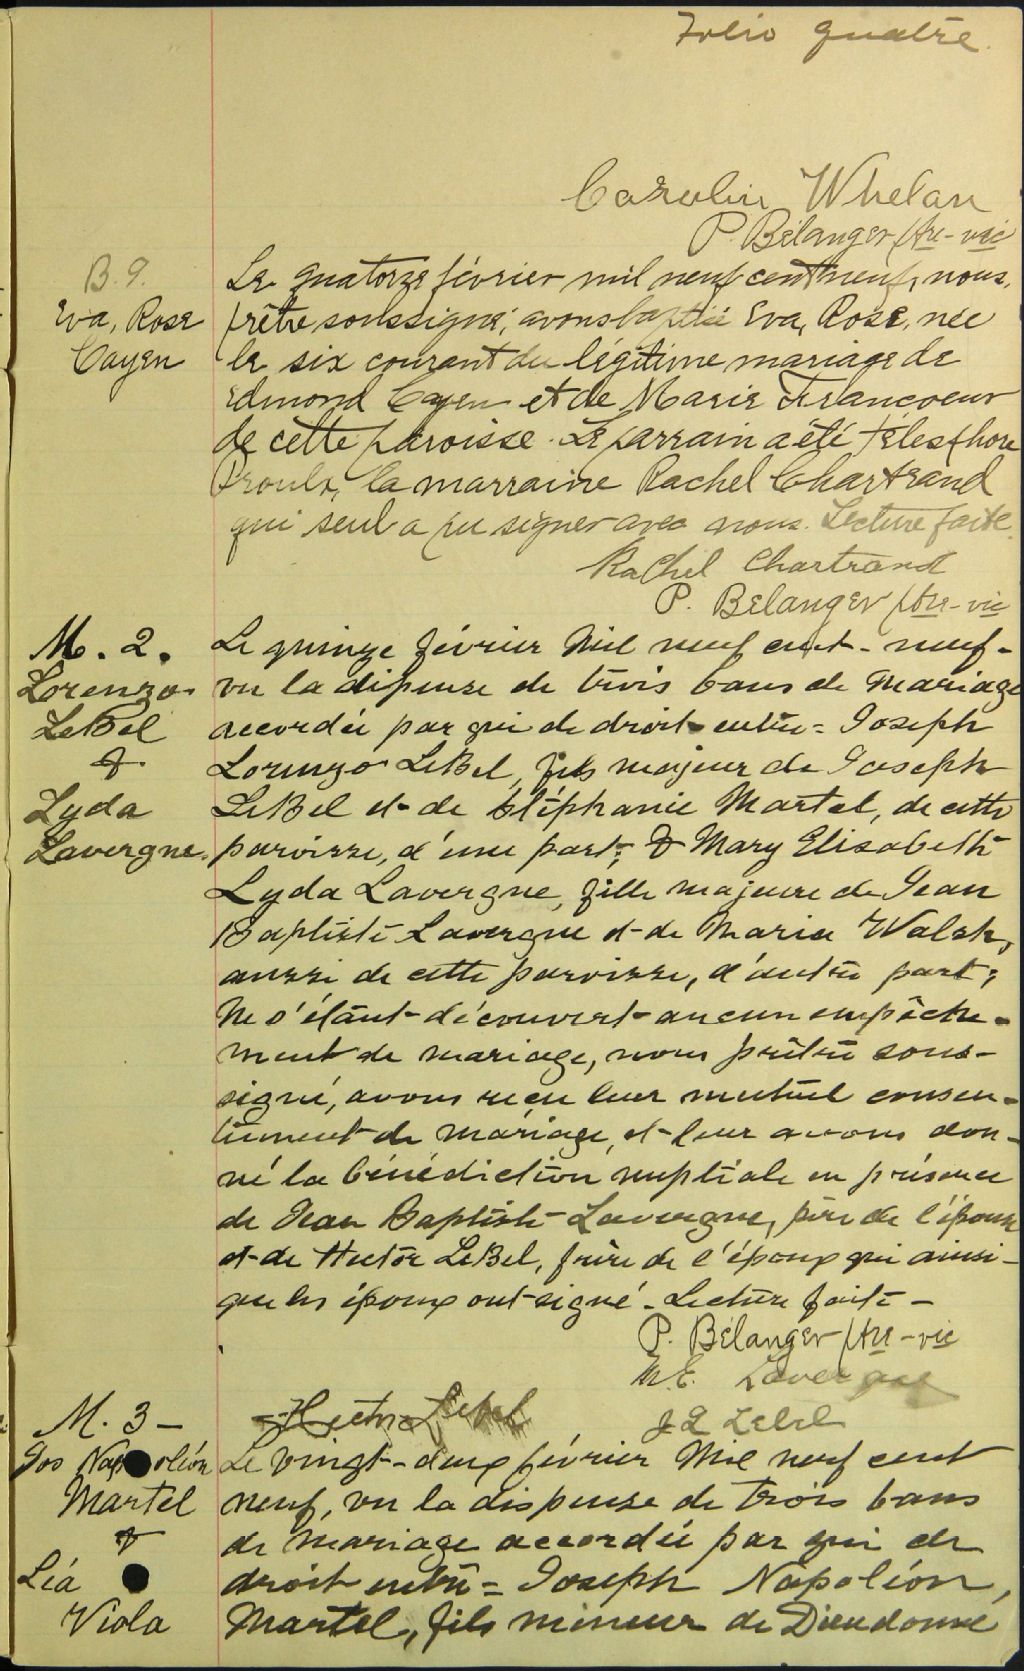 Folio quatre.
Carolin Whelan
P. Bélanger ptre-vic
B. 9.
Eva, Rose
Cayen
Le quatorze février mil neuf cent neuf, nous,
prêtre soussigné, avons baptisé Eva, Rose, née
le six courant du légitime mariage de
Edmond Cayen et de Marie Francoeur
de cette paroisse. Le parrain a été Télesphore
Proulx, la marraine Rachel Chartrand
qui seul a pu signer avec nous. Lecture faite.
Rachel Chartrand
P. Bélanger ptre-vic
M. 2.
Lorenzo
LeBel
&
Lyda
Lavergne.
Le quinze février Mil neuf cent-neuf-
vu la dispense de trois bans de Mariage
accordée par qui de droit entre = Joseph
Lorenzo LeBel, fils majeur de Joseph
LeBel et de Stéphanie Martel, de cette
paroisse, d'une part; & Mary Elisabeth
Lyda Lavergne, fille majeure de Jean
Baptiste Lavergne et de Maria Walsh,
aussi de cette paroisse, d'autre part;
Ne s'étant découvert aucun empêche-
ment de mariage, nous prêtre sous-
signé, avons reçu leur mutuel consen-
tement de mariage, et leur avons don-
né la bénédiction nuptiale en présence
de Jean Baptiste Lavergne, père de l'épouse
et de Hector LeBel, frère de l'époux qui ainsi-
que les époux ont signé - Lecture faite -
P. Bélanger ptre-vic
M. E. Lavergne
Hector Lebel
J L Lebel
M. 3 -
Jos Napoléon
Martel
&
Léa
Viola
Le vingt-deux février Mil neuf cent
neuf, vu la dispense de trois bans
de mariage accordée par qui de
droit entre = Joseph Napoléon,
Martel, fils mineur de Dieudonné